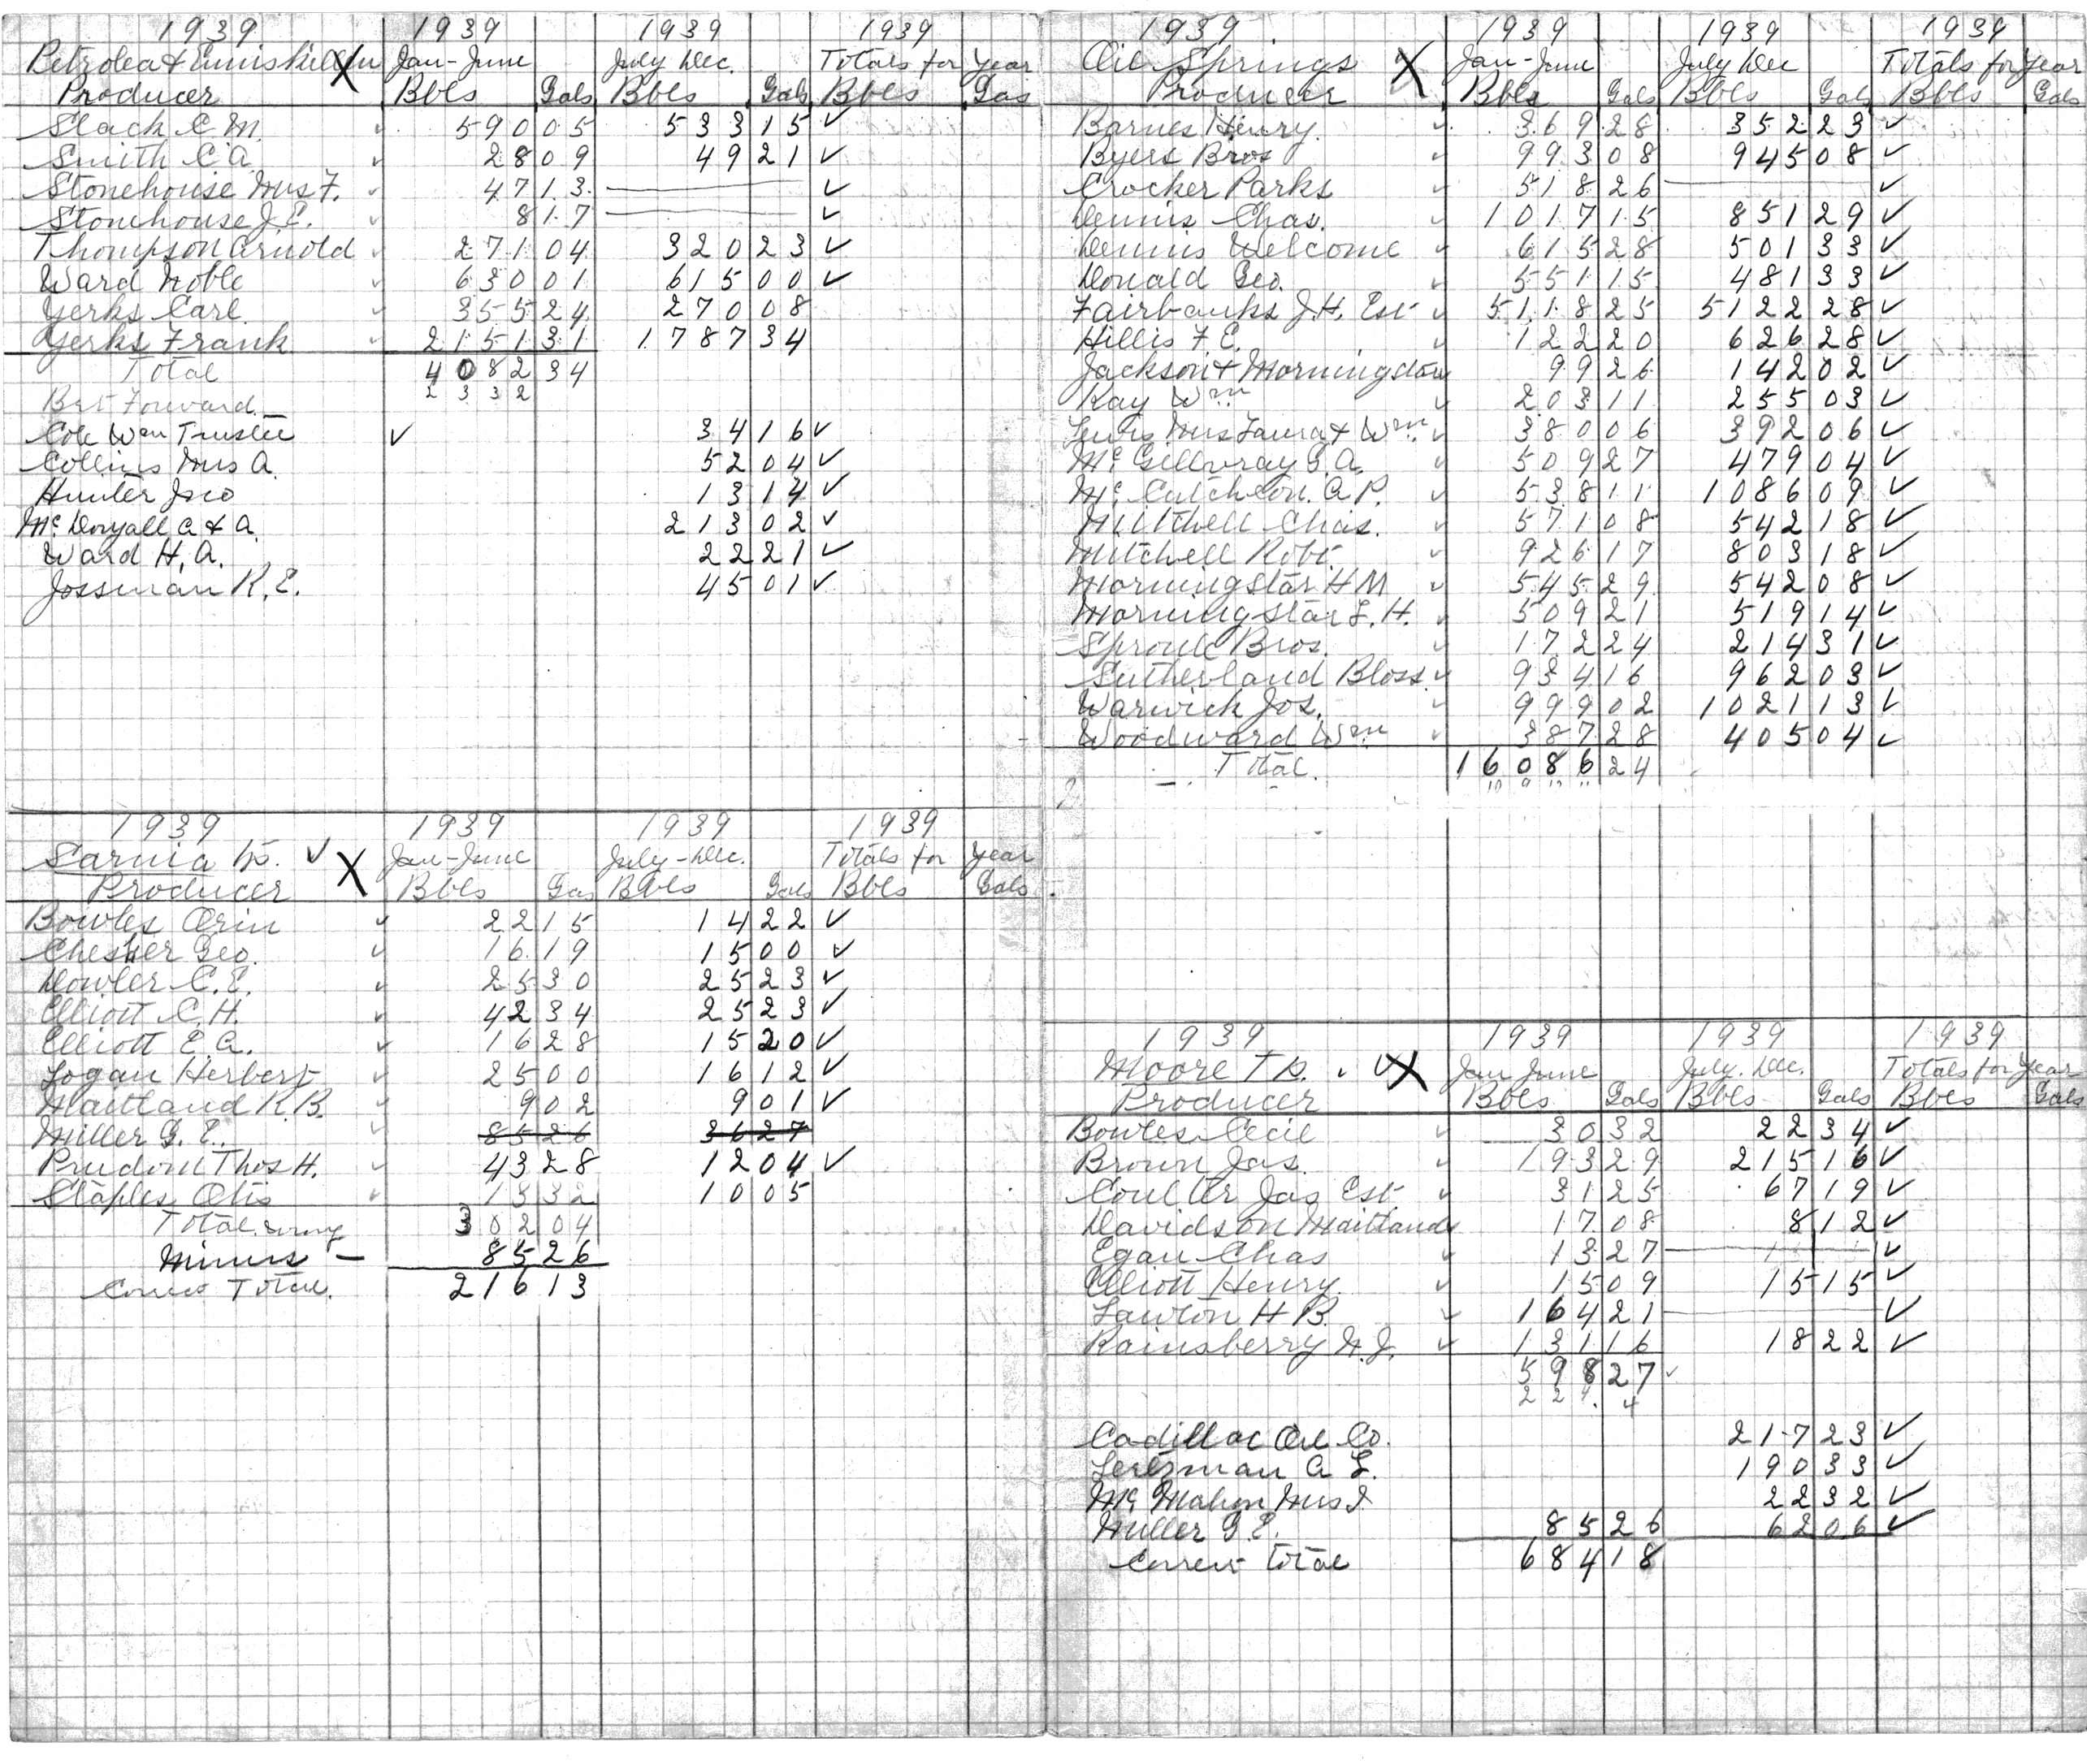 1939 1939 1939 1939
Petrolea & Enniskillen X Jan-June July Dec. Totals for Year
Producer Bbls Gals Bbls Gals Bbls Gas
Slack C. M. ✓ 590 05 533 15 ✓
Smith C. A. ✓ 28 09 49 21 ✓
Stonehouse Mrs F. ✓ 47 13 — ✓
Stonehouse J. E. ✓ 8 17 — ✓
Thompson Arnold ✓ 271 04 320 23 ✓
Ward Noble ✓ 630 01 615 00 ✓
Yerks Carl ✓ 355 24 270 08
Yerks Frank ✓ 2151 31 1787 34
Total 4082 34
2 3 3 2
Brt Forward
Cole Wm Trustee ✓ 34 16 ✓
Collins Mrs A. 52 04 ✓
Hunter Jno 13 14 ✓
McDougall C & A. 213 02 ✓
Ward H. A. 22 21 ✓
Jossman R. E. 45 01 ✓
1939 1939 1939 1939
Sarnia Tp. ✓ X Jan-June July-Dec. Totals for Year
Producer Bbls Gas Bbls Gals Bbls Gals
Bowles Orin ✓ 22 15 14 22 ✓
Chester Geo. ✓ 16 19 15 00 ✓
Dowler C. E. ✓ 25 30 25 23 ✓
Elliott C. H. ✓ 42 34 25 23 ✓
Elliott E. A. ✓ 16 28 15 20 ✓
Logan Herbert ✓ 25 00 16 12 ✓
Maitland R. B. ✓ 9 02 9 01 ✓
Miller G. E. ✓ 85 26 36 27
Prudom Thos H. ✓ 43 28 12 04 ✓
Staples Otis ✓ 13 32 10 05
Total wrong 302 04
Minus — 85 26
Correct Total. 216 13
1939 1939 1939 1939
Oil Springs X Jan-June July Dec Totals for Year
Producer Bbls Gals Bbls Gals Bbls Gals
Barnes Henry. ✓ 369 28 352 23 ✓
Byers Bros ✓ 993 08 945 08 ✓
Crocker Parks ✓ 518 26 — ✓
Dennis Chas. ✓ 1017 15 851 29 ✓
Dennis Welcome ✓ 615 28 501 33 ✓
Donald Geo. ✓ 551 15 481 33 ✓
Fairbanks J. H. Est ✓ 5118 25 5122 28 ✓
Hillis F. E. ✓ 122 20 626 28 ✓
Jackson & Morningstar 99 26 142 02 ✓
Kay Wm ✓ 203 11 255 03 ✓
Lewis Mrs Laura & Wm ✓ 380 06 392 06 ✓
McGillvray G. A. ✓ 509 27 479 04 ✓
McCutcheon. A. P. ✓ 538 11 1086 09 ✓
Mitchell Chas. ✓ 571 08 542 18 ✓
Mitchell Robt. ✓ 926 17 803 18 ✓
Morningstar H M ✓ 545 29 542 08 ✓
Morningstar L. H. ✓ 509 21 519 14 ✓
Sproule Bros. ✓ 172 24 214 31 ✓
Sutherland Bloss ✓ 934 16 962 03 ✓
Warwick Jos. ✓ 999 02 1021 13 ✓
Woodward Wm ✓ 387 28 405 04 ✓
Total. 16086 24
1939 1939 1939 1939
Moore Tp. ✓ X Jan June July. Dec. Totals for Year
Producer Bbls Gals Bbls Gals Bbls Gals
Bowles Cecil ✓ 30 32 22 34 ✓
Brown Jas. ✓ 193 29 215 16 ✓
Coulter Jas Est ✓ 31 25 67 19 ✓
Davidson Maitland 17 08 8 12 ✓
Egan Chas ✓ 13 27 — ✓
Elliott Henry ✓ 15 09 15 15 ✓
Lawton H B. ✓ 164 21 — ✓
Rainsberry H. J. ✓ 131 16 18 22 ✓
598 27 ✓
Cadillac Oil Co. 217 23 ✓
Lertzman A L. 190 33 ✓
McMahon Mrs I 22 32 ✓
Miller G. E. 85 26 62 06 ✓
Correct Total 684 18